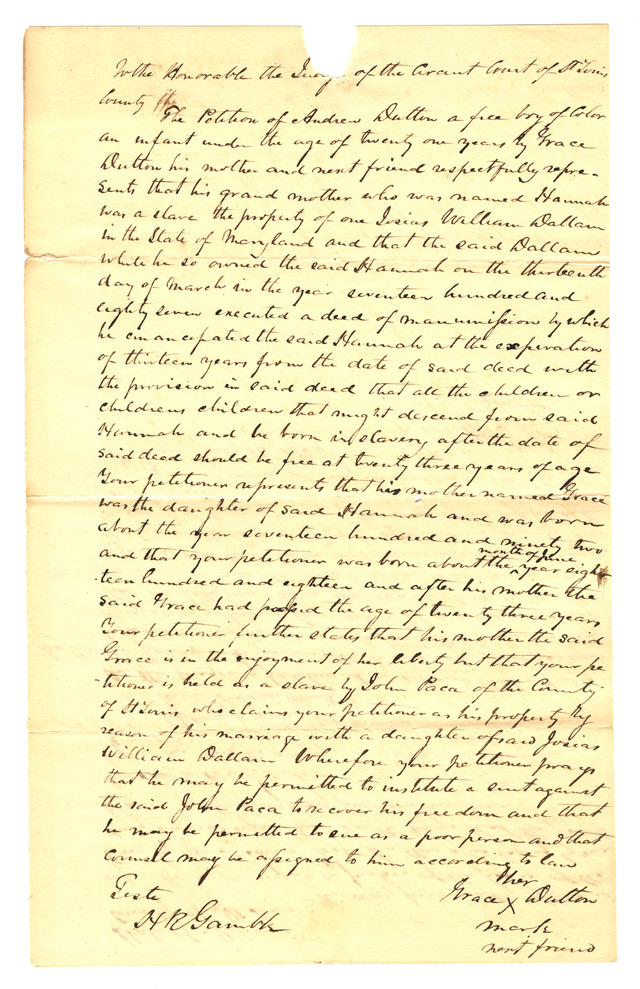 To the Honorable the Judge of the Circuit Court of St Louis
County
The Petition of Andrew Dutton a free boy of Color
an infant under the age of twenty one years by Grace
Dutton his mother and next friend respectfully repre-
sents that his grand mother who was named Hannah
was a slave the property of one Josias William Dallam
in the State of Maryland and that the said Dallam
while he so owned the said Hannah on the thirteenth
day of March in the year seventeen hundred and
eighty seven executed a deed of manumission by which
he emancipated the said Hannah at the experation
of thirteen years from the date of said deed with
the provision in said deed that all the children or
childrens children that might descend from said
Hannah and be born in slavery after the date of
said deed should be free at twenty three years of age
Your petitioner represents that his mother named Grace
was the daughter of said Hannah and was born
about the year seventeen hundred and ninety two
and that your petitioner was born about the month of June year eigh
-teen hundred and eighteen and after his mother the
said Grace had passed the age of twenty three years
Your petitioner further states that his mother the said
Grace is in the enjoyment of her liberty but that your pe
-titioner is held as a slave by John Paca of the County
of St Louis who claims your petitioner as his property by
reason of his marriage with a daughter of said Josias
William Dallam Wherefore your petitioner prays
that he may be permitted to institute a suit against
the said John Paca to recover his freedom and that
he may be permitted to sue as a poor person and that
Counsel may be assigned to him according to law
her
Teste Grace X Dutton
H R Gamble mark
next friend